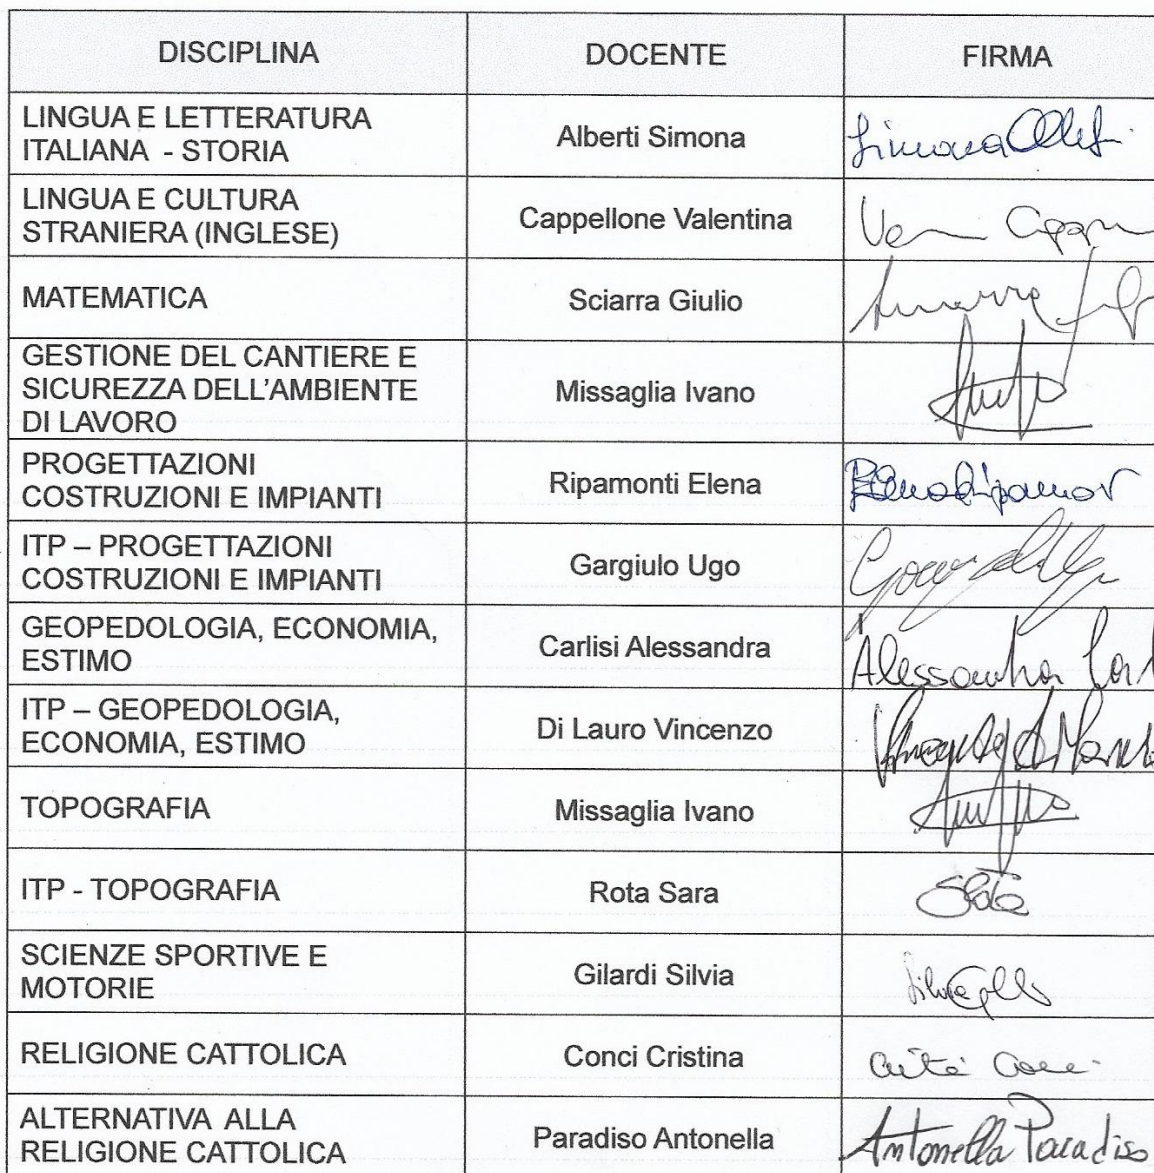 DISCIPLINA DOCENTE FIRMA
LINGUA E LETTERATURA
ITALIANA - STORIA
Alberti Simona
Simona
LINGUA E CULTURA
STRANIERA (INGLESE)
Cappellone Valentina
MATEMATICA
Sciarra Giulio
GESTIONE DEL CANTIERE E
SICUREZZA DELL'AMBIENTE
DI LAVORO
Missaglia Ivano
PROGETTAZIONI
COSTRUZIONI E IMPIANTI
Ripamonti Elena
ITP – PROGETTAZIONI
COSTRUZIONI E IMPIANTI
Gargiulo Ugo
GEOPEDOLOGIA, ECONOMIA,
ESTIMO
Carlisi Alessandra
Alessandra
ITP – GEOPEDOLOGIA,
ECONOMIA, ESTIMO
Di Lauro Vincenzo
TOPOGRAFIA
Missaglia Ivano
ITP - TOPOGRAFIA
Rota Sara
SCIENZE SPORTIVE E
MOTORIE
Gilardi Silvia
RELIGIONE CATTOLICA
Conci Cristina
ALTERNATIVA ALLA
RELIGIONE CATTOLICA
Paradiso Antonella
Antonella Paradiso